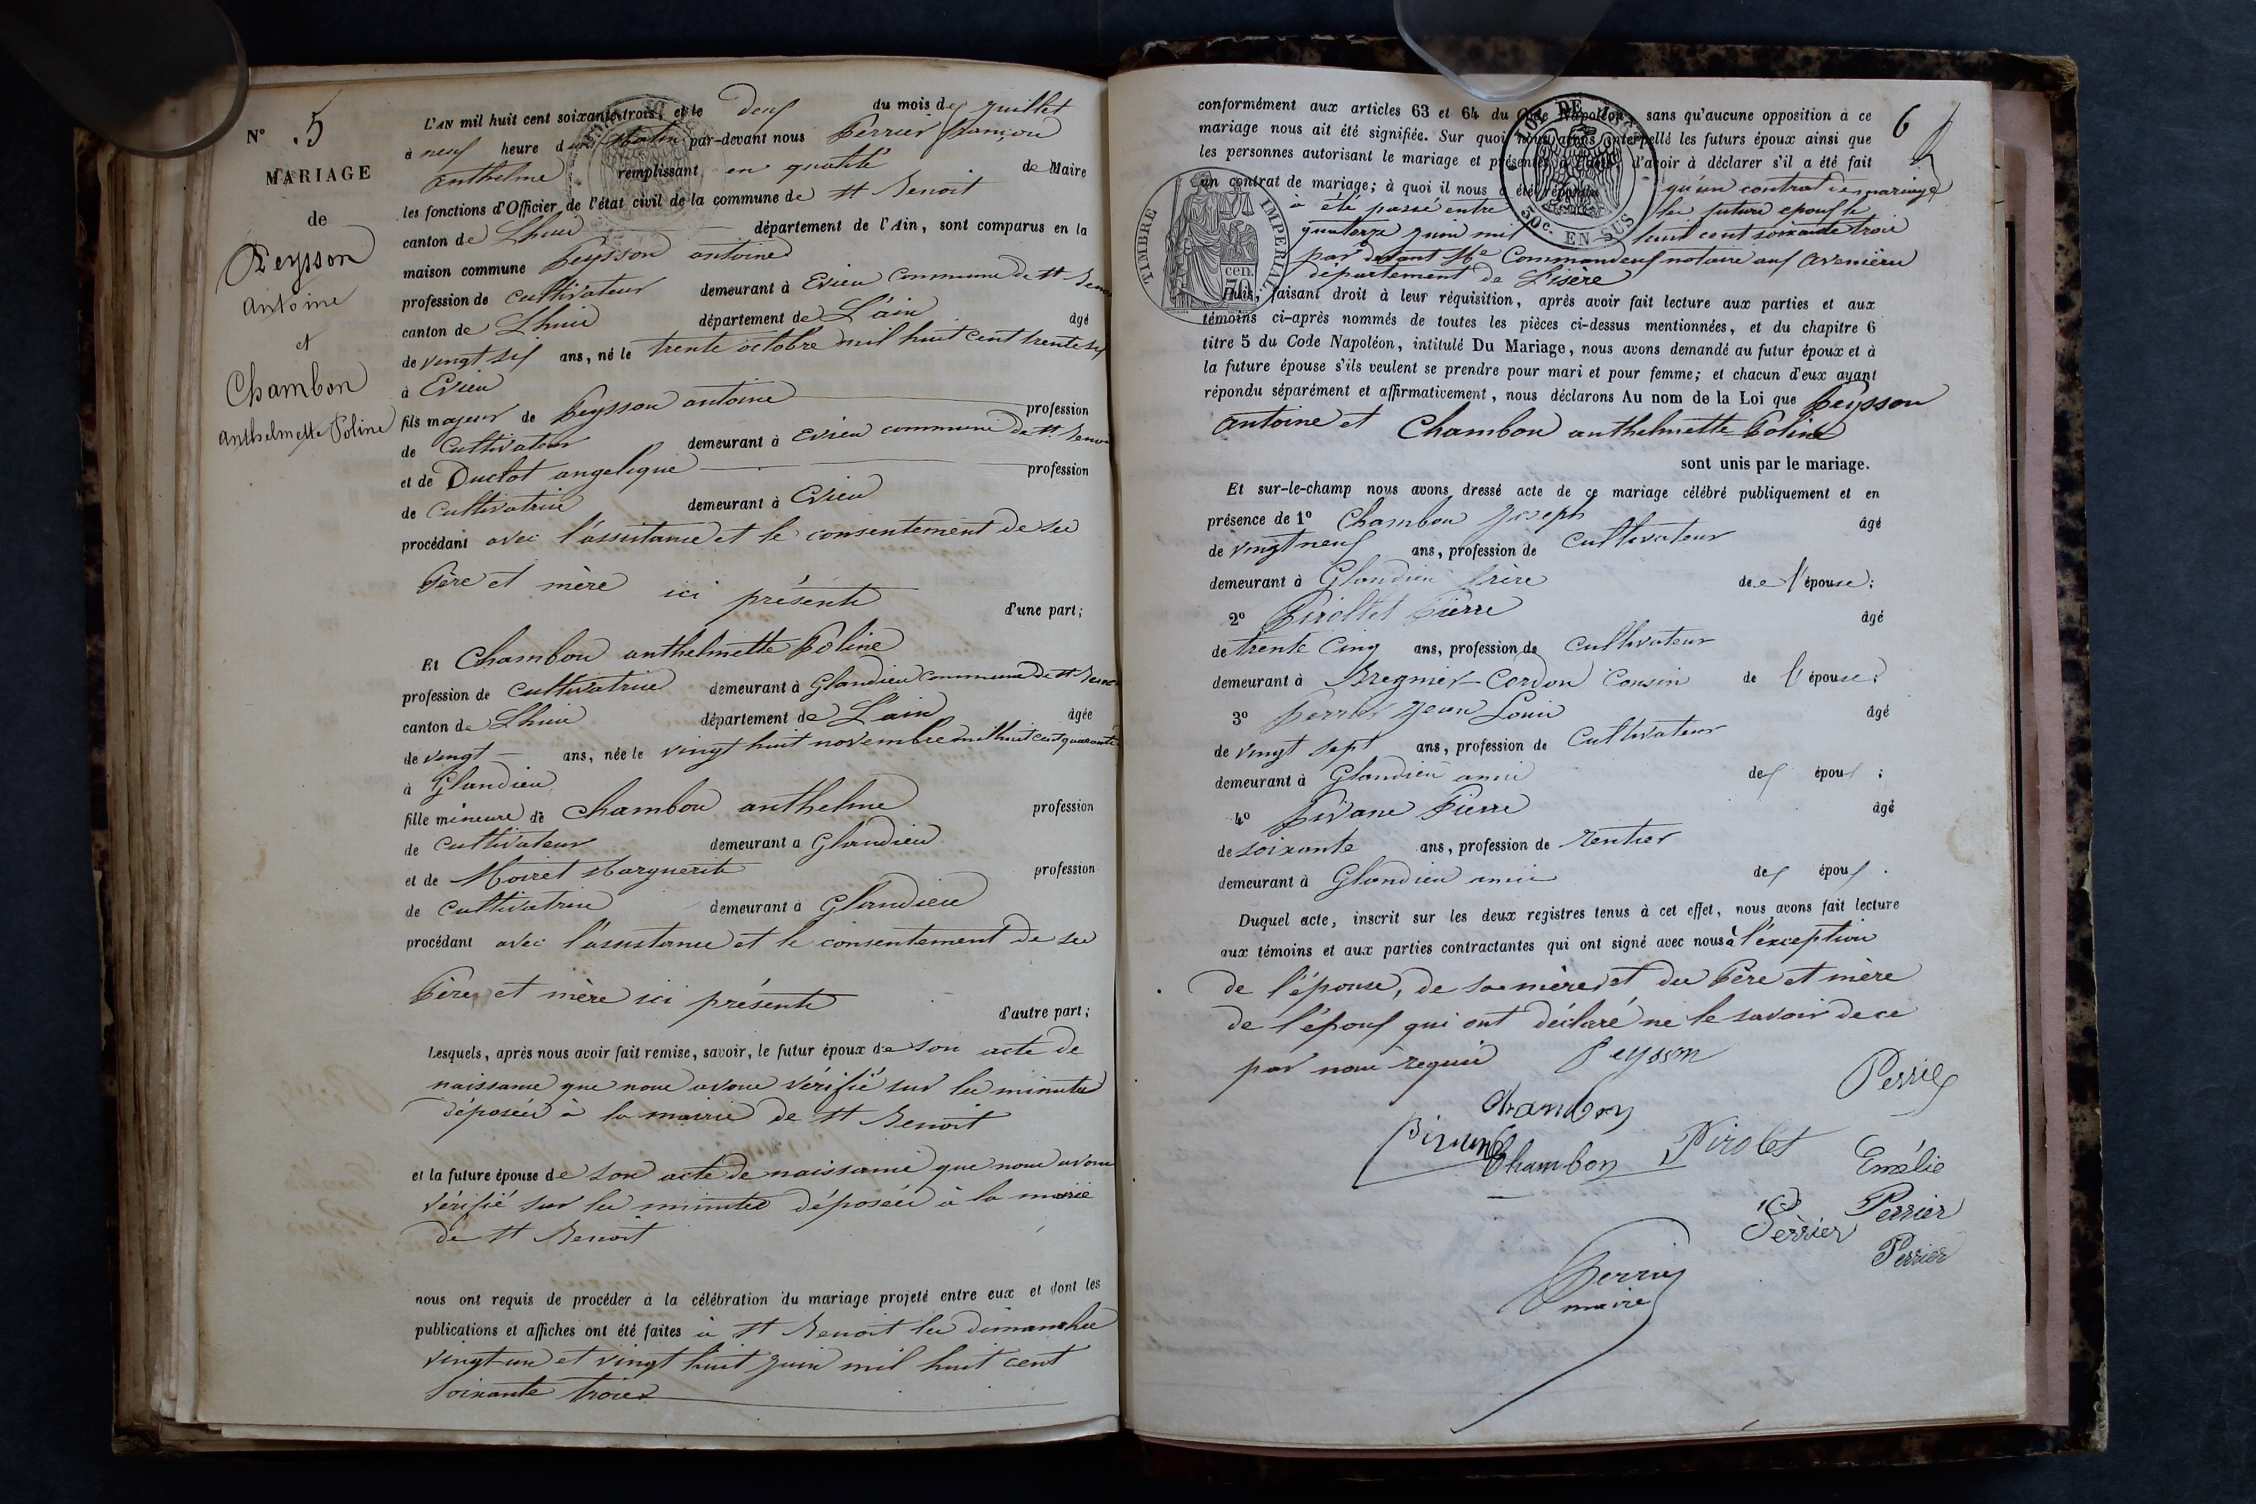 N° 5
MARIAGE
de
Peysson
antoine
et
Chambon
Anthelmette Poline
L'AN mil huit cent soixante-trois, et le deux du mois de juillet
à neuf heure du Matin par-devant nous Perrier françois
anthelme remplissant en qualité de Maire
les fonctions d'Officier de l'état civil de la commune de St Benoit
canton de Lhuis département de l'Ain, sont comparus en la
maison commune Peysson antoine
profession de cultivateur demeurant à Evieu commune de St Benoit
canton de Lhuis département de L'ain âgé
de vingt six ans, né le trente octobre mil huit cent trente six
à Evieu
fils majeur de Peysson antoine profession
de Cultivateur demeurant à Evieu commune de St Benoit
et de Duclot angelique profession
de Cultivatrice demeurant à Evieu
procédant avec l'assistance et le consentement de ses
Père et mère ici présents
d'une part;
Et Chambon anthelmette Poline
profession de cultivatrice demeurant à Glandieu commune de St Benoit
canton de Lhuis département de L'ain âgée
de vingt ans, née le vingt huit novembre mil huit cent quarante
à Glandieu
fille mineure de Chambon anthelme profession
de cultivateur demeurant a Glandieu
et de Moiret Marguerite profession
de cultivatrice demeurant à Glandieu
procédant avec l'assistance et le consentement de ses
Père et mère ici présents
d'autre part;
Lesquels, après nous avoir fait remise, savoir, le futur époux de son acte de
naissance que nous avons vérifié sur les minutes
déposées à la mairie de St Benoit
et la future épouse de son acte de naissance que nous avons
vérifié sur les minutes déposées à la mairie
de St Benoit
nous ont requis de procéder à la célébration du mariage projeté entre eux et dont les
publications et affiches ont été faites à St Benoit les dimanches
vingt un et vingt huit juin mil huit cent
soixante trois
6
conformément aux articles 63 et 64 du Code Napoléon, sans qu'aucune opposition à ce
mariage nous ait été signifiée. Sur quoi nous avons interpellé les futurs époux ainsi que
les personnes autorisant le mariage et présentes à l'acte d'avoir à déclarer s'il a été fait
un contrat de mariage; à quoi il nous a été répondu qu'un contrat de mariage
a été passé entre les futurs epoux le
quatorze juin mil huit cent soixante trois
par devant Me Commandeur notaire aux Avenières
département de L'isère
LOI DE
30c. EN SUS
TIMBRE IMPERIAL
70 cen.
Puis, faisant droit à leur réquisition, après avoir fait lecture aux parties et aux
témoins ci-après nommés de toutes les pièces ci-dessus mentionnées, et du chapitre 6
titre 5 du Code Napoléon, intitulé Du Mariage, nous avons demandé au futur époux et à
la future épouse s'ils veulent se prendre pour mari et pour femme; et chacun d'eux ayant
répondu séparément et affirmativement, nous déclarons Au nom de la Loi que Peysson
antoine et Chambon anthelmette Poline
sont unis par le mariage.
Et sur-le-champ nous avons dressé acte de ce mariage célébré publiquement et en
présence de 1° Chambon Joseph âgé
de vingt neuf ans, profession de Cultivateur
demeurant à Glandieu frère de l'épouse;
2° Pirollet Pierre âgé
de trente cinq ans, profession de cultivateur
demeurant à Bregnier-Cordon Cousin de l'épouse;
3° Perrier Jean Louis âgé
de vingt sept ans, profession de Cultivateur
demeurant à Glandieu amis des époux;
4° Pivane Pierre âgé
de soixante ans, profession de rentier
demeurant à Glandieu amis des époux.
Duquel acte, inscrit sur les deux registres tenus à cet effet, nous avons fait lecture
aux témoins et aux parties contractantes qui ont signé avec nous à l'exception
de l'épouse, de sa mère et des Père et mère
de l'époux qui ont déclaré ne le savoir de ce
par nous requis Peysson
Perrier
Chambon
Chambon Pirolet Emélie
Perrier Perrier
Perrier
Perrier
maire